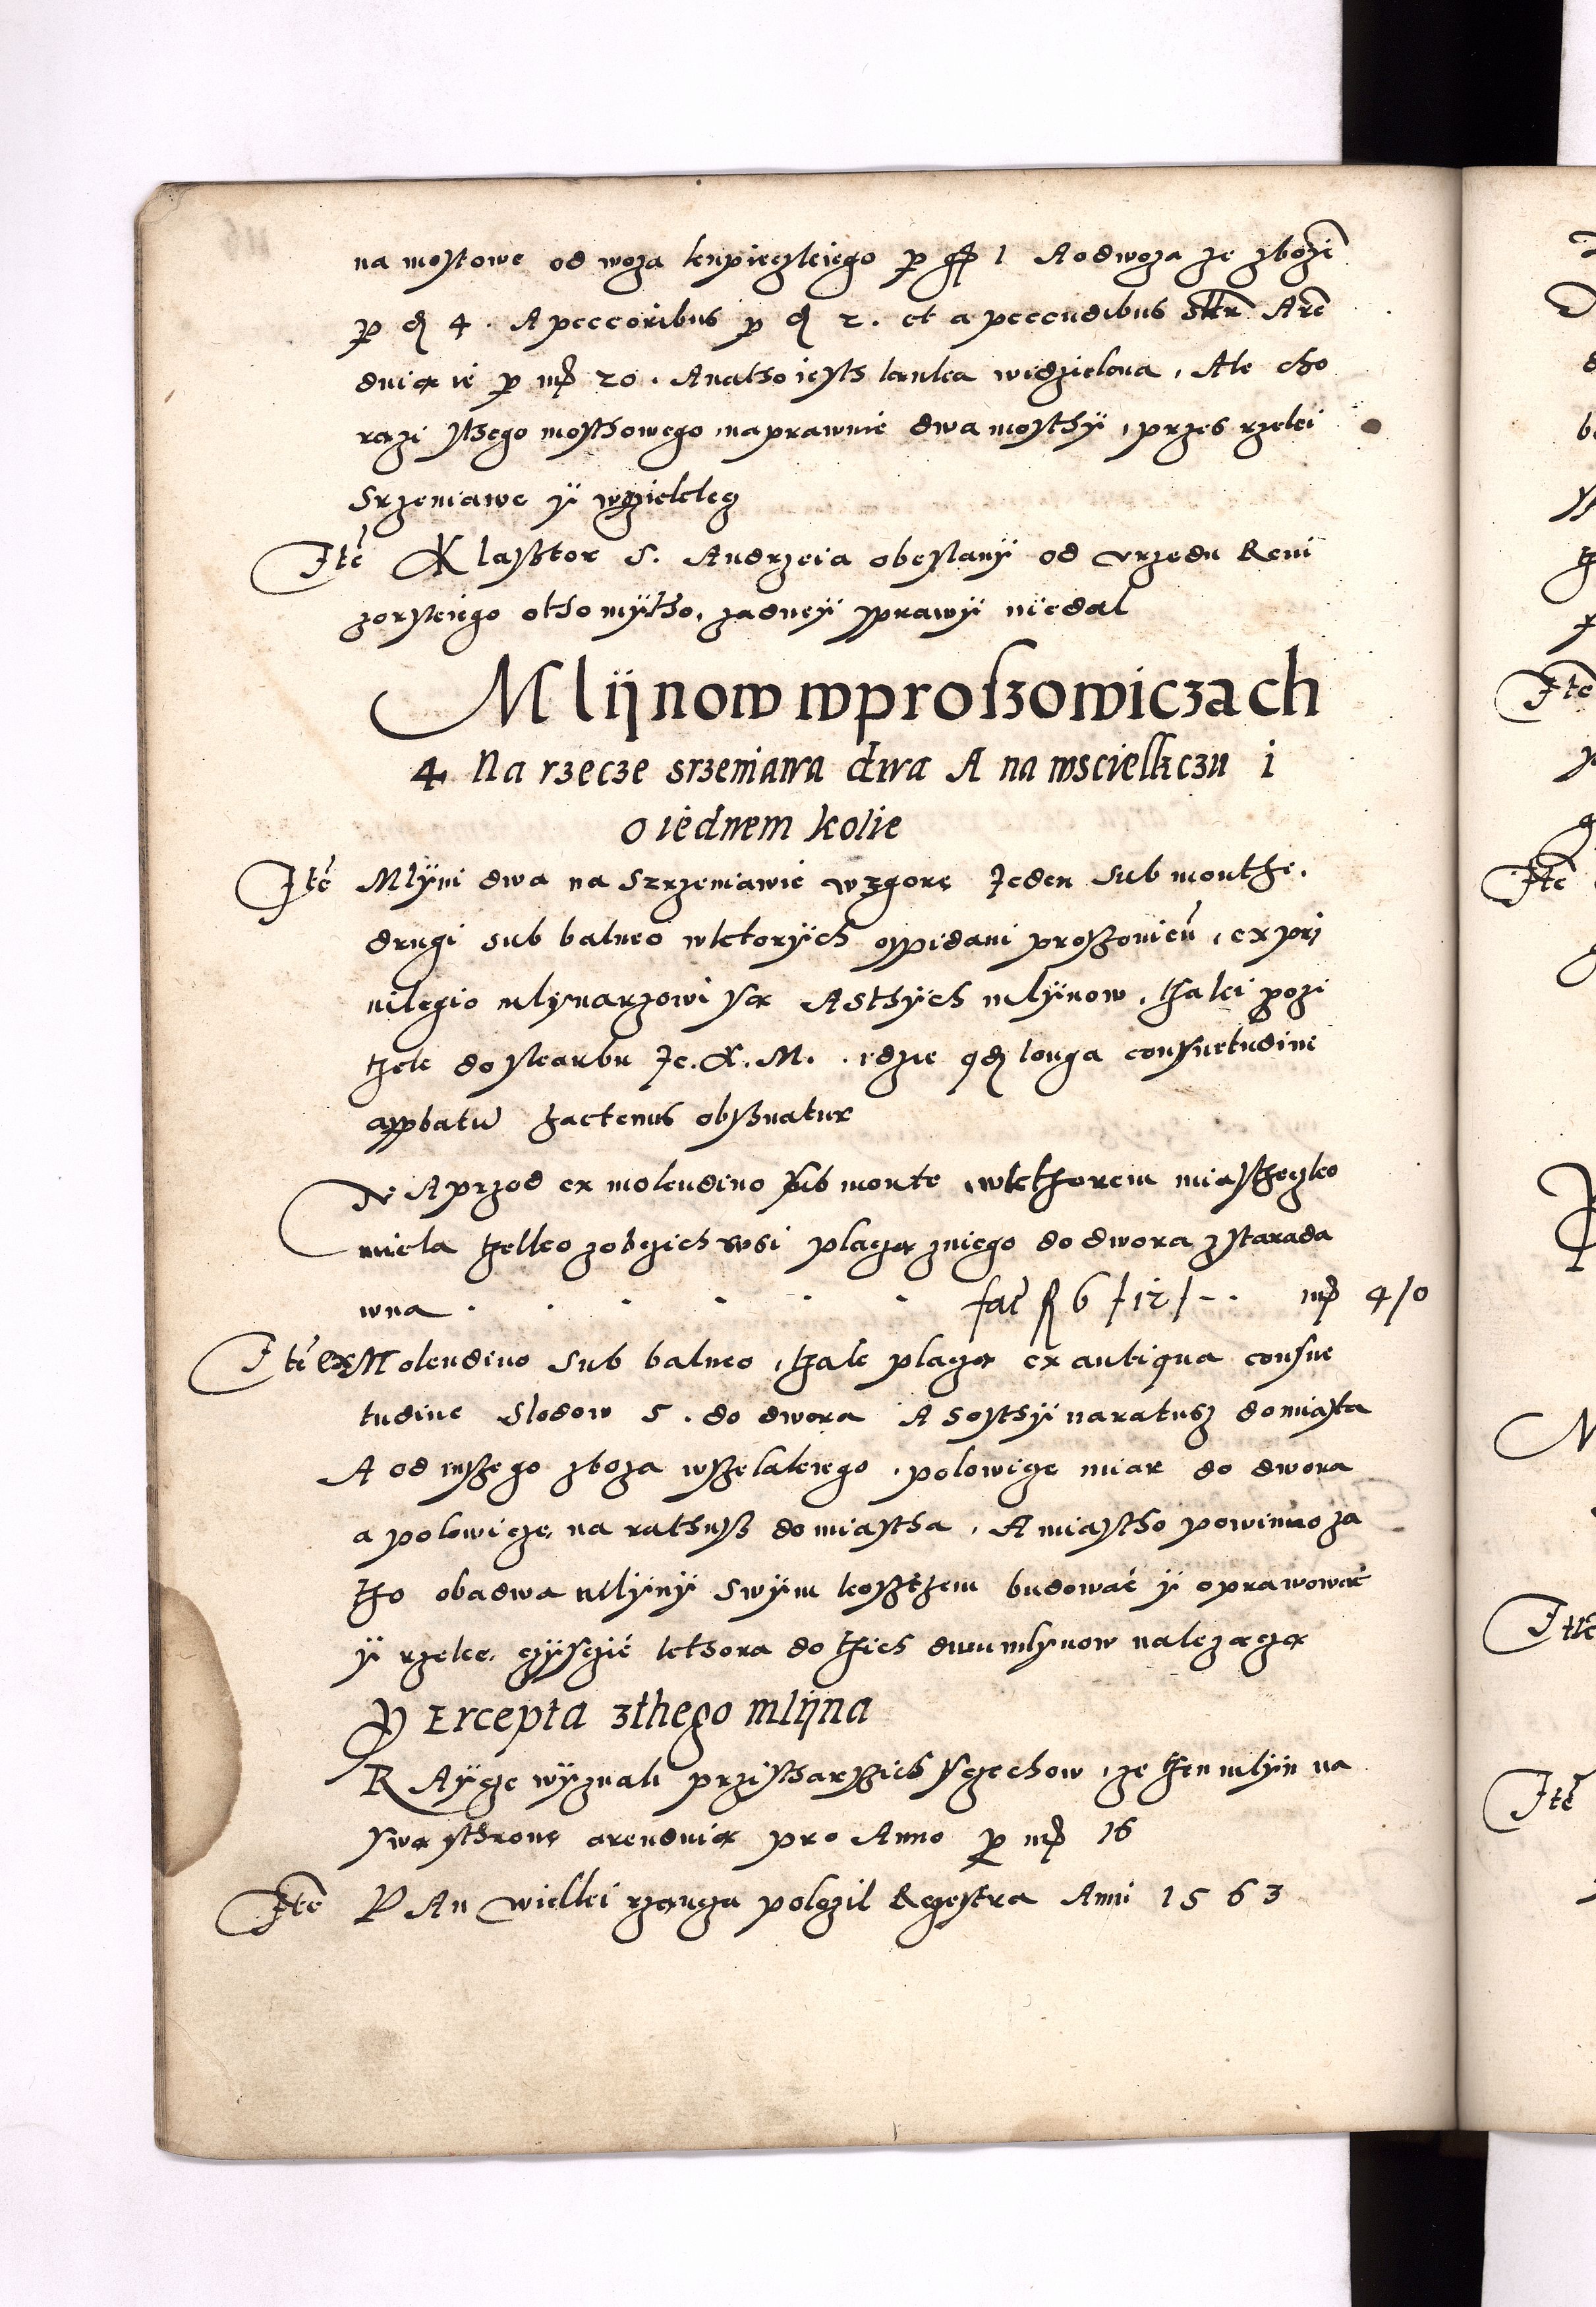 na mostowe od woza kupieczkiego p gr 1 A od woza ze zbożem
p d 4. A peccoribus p d 2. et a peccudibus Are
duią ie p mp 20. A na tho iesth łanka widzielona, Ale cho
razi sthego mosthowego naprawuie dwa mosthÿ, przes rzeki
Srzeniawe ÿ
Ite Klasztor S. Andrzeia obesłanÿ od vrzędu Reui
zorskiego otho mÿtho, zadneÿ sprawÿ nie dal
Mlÿnow w proszowiczach
4 Na rzecze srzeniawa dwa A na wscielkczu i
o iednem kolie
Ite Mlÿni dwa na Szrzeniawie w zgorę Jeden sub monthe.
drugi sub balneo w ktorÿch oppidani proszouien, ex pri
uilegio mlynarzowi są A sthÿch mlÿnow, thaki pozi
thek do skarbu Je. K. M. idzie qd longa consuetudine
appbatu hactenus obseruatur
Ne A przod ex molendino sub monte, w kthorem miastheczko
miela thelko zobczich wsi płaczą zniego do dwora z starada
wna . . . . . . fac R 6 /12/ - . mp 4/0
Ite ex Molendino sub balneo, thak płaczą ex antiqua consue
tudine Slodow 5. do dwora A Sosthÿ na ratusz do miasta
A od inszego zboza wszelakiego, polowicze miar do dwora
a polowicze, na rathusz do miastha, A miastho powinno za
tho obadwa Mlÿnÿ Swÿm kosztem budowac ÿ oprawowac
ÿ rzeke, czÿsczić kthora do thich dwu mlynow nalezączą
PErcepta z thego mlÿna
RAÿcze wÿznali przi stharszich sczechow, ze then mlÿn na
swą sthronę arenduią pro Anno p mp 16
Ite PAn wielki rządcza polozil Regestra Anni 1563